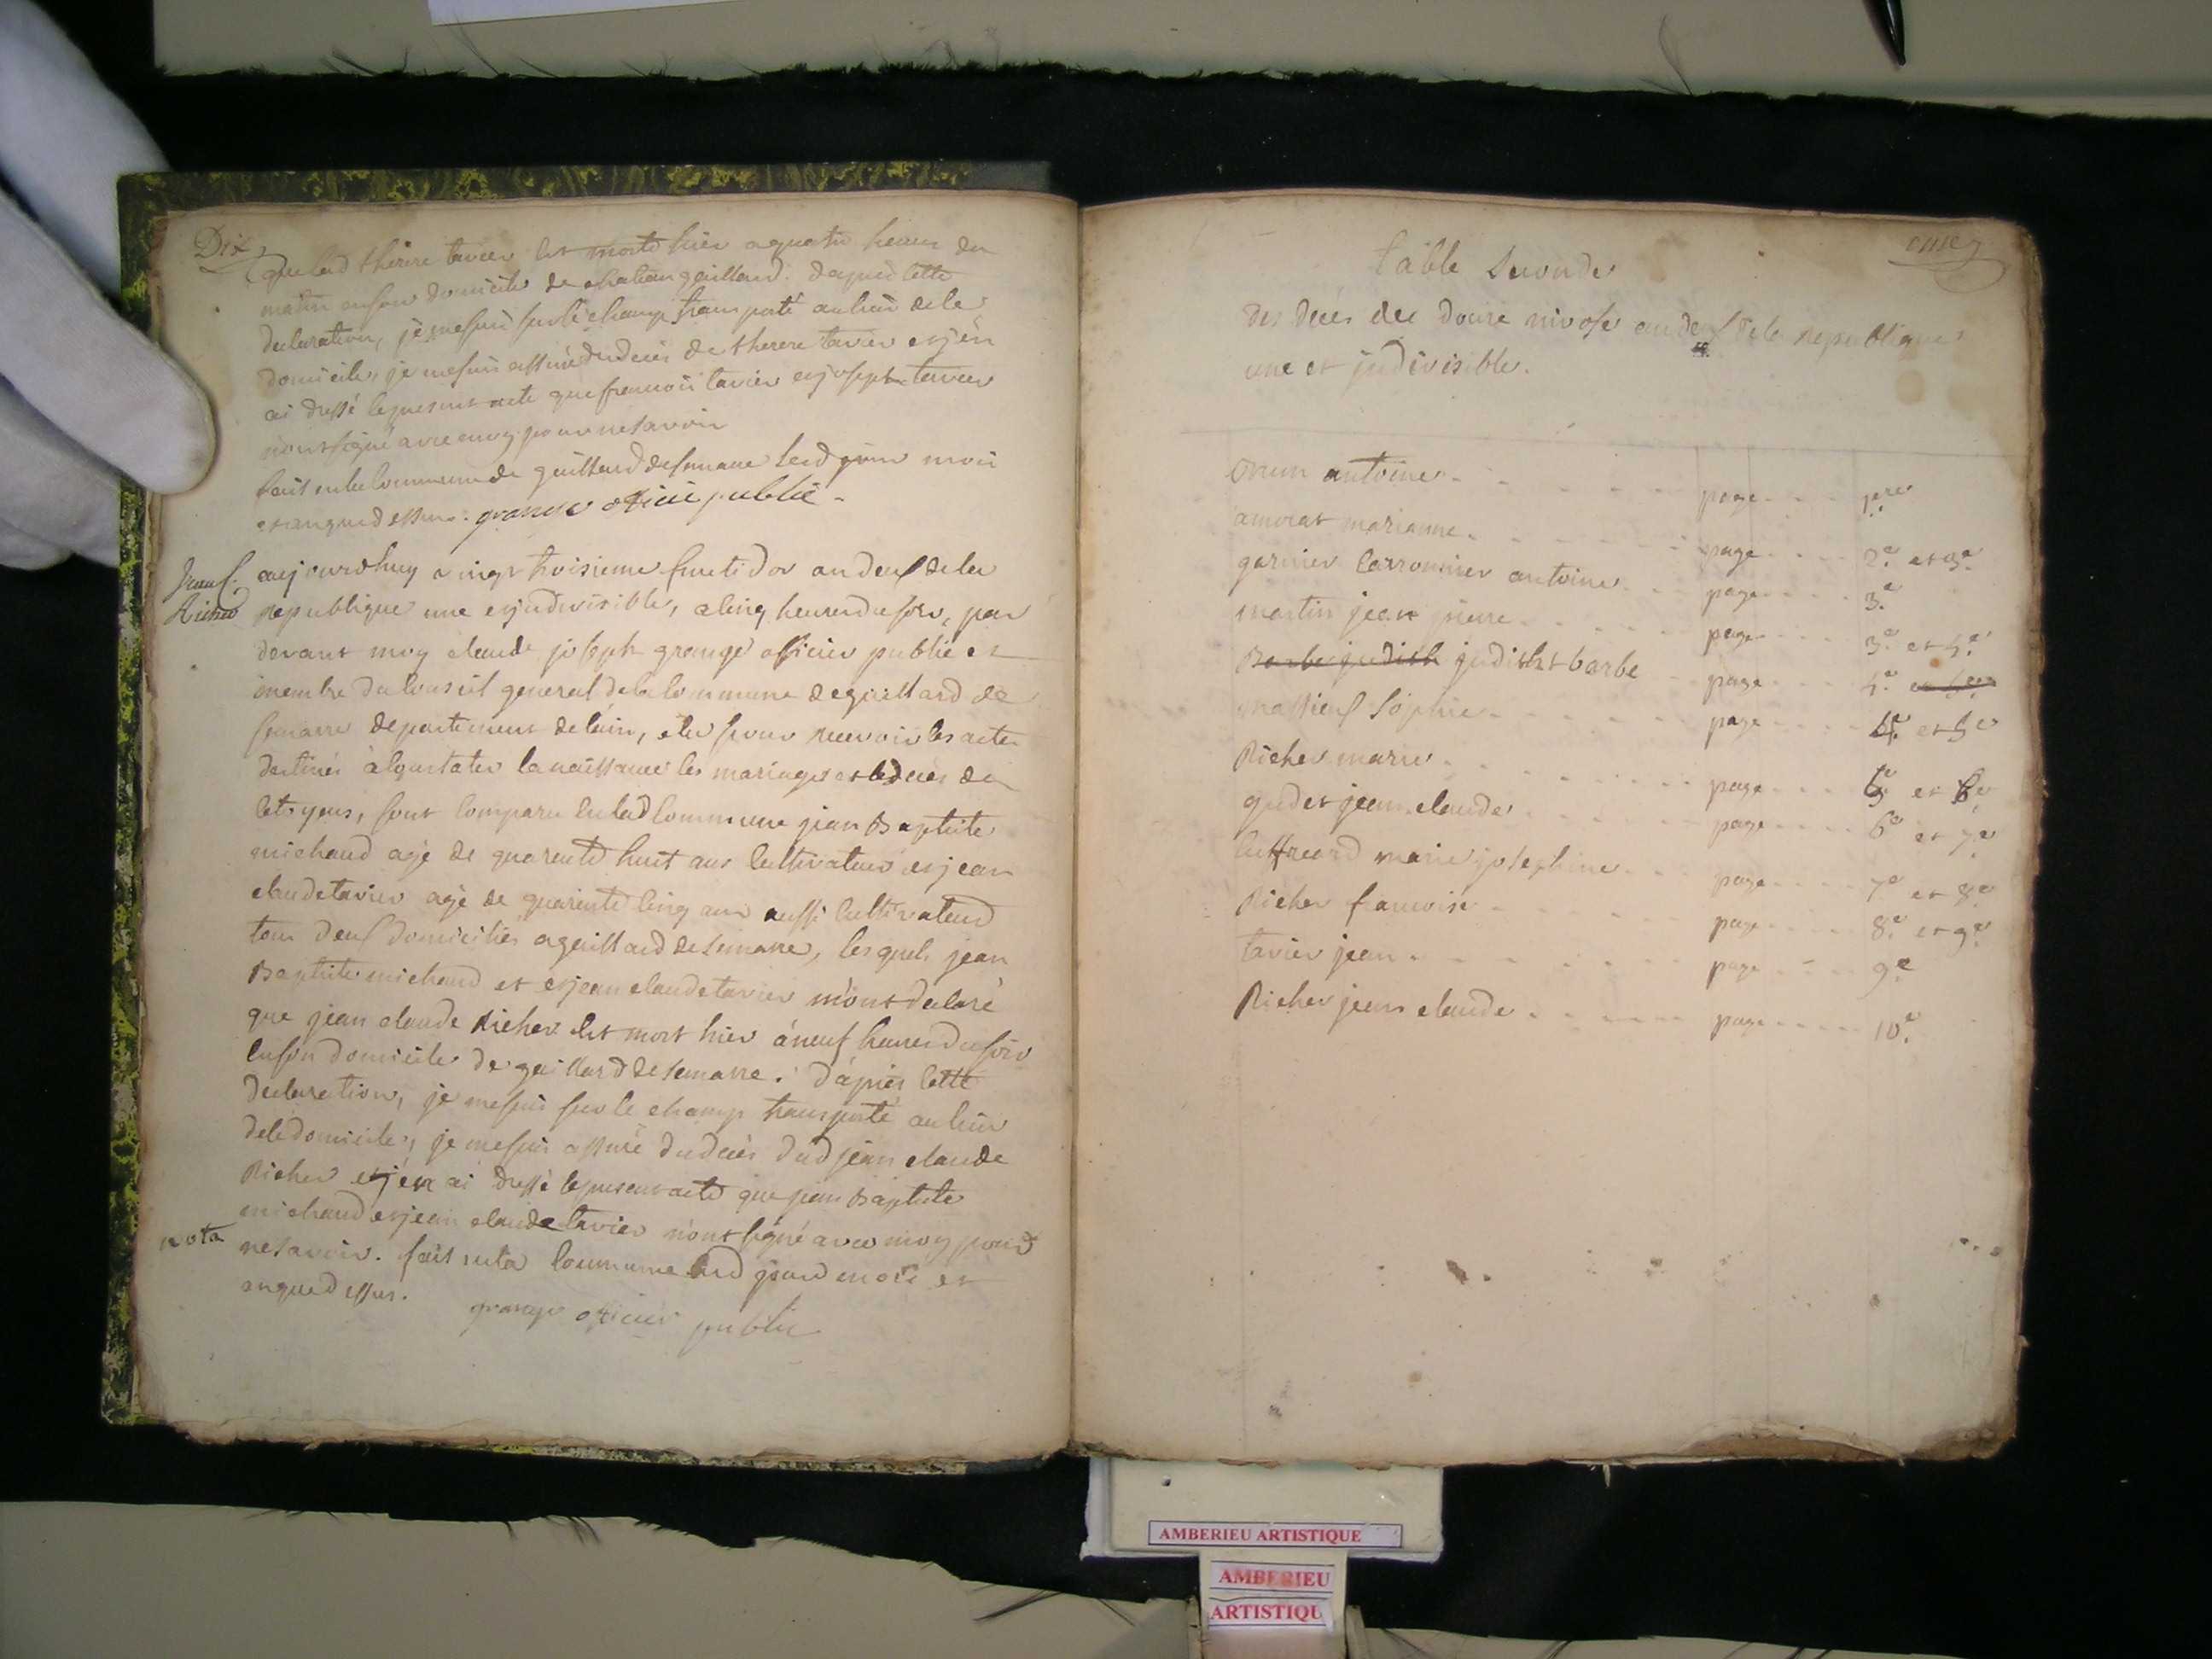 Dix
que lad thérèse tavier est morte hier a quatre heures du
matin en son domicile de chateau gaillard. d'après cette
declaration, je me suis sur le champ transporté au lieu de le
domicile, je me suis assuré du deces de therese tavier et j'en
ai dressé le present acte que francois tavier et joseph tavier
n'ont signé avec moy pour ne savoir
fait en la commune de gaillard de semane les d jour mois
et an que dessus. grange officier public
Jean C.
Richer
aujourdhuy vingt troisieme fructidor an deux de la
republique une et indivisible, a cinq heures du soir, par
devant moy claude joseph grange officier public et
membre du conseil general de la commune de gaillard de
semane departement de l'ain, elu pour recevoir les actes
destinés à constater la naissance les mariages et le deces des
citoyens, sont comparu en lad commune jean Baptiste
michaud agé de quarente huit ans cultivateur et jean
claude tavier agé de quarente cinq ans aussi cultivateur
tous deux domiciliés a gaillard de semane, lesquels jean
Baptiste michaud et et jean claude tavier m'ont declaré
que jean claude Richer est mort hier à neuf heures du soir
en son domicile de gaillard de semane. d'après cette
declaration, je me suis sur le champ transporté au lieu
de le domicile, je me suis assuré du deces dud jean claude
Richer et j'en ai dressé le present acte que jean Baptiste
michaud et jean claude tavier n'ont signé avec moy pour
nota
ne savoir. fait en la commune les d jour mois et
an que dessus.
grange officier public
onze
table seconde
des deces du douze nivose an deux de la republique
une et indivisible.
antoine - - - page - - 1.re
amorat marianne - - - page - - 2.e et 3.e
garnier carronnier antoine - - page - - 3.e
martin jean pierre - - - page - - 3.e et 4.e
Barbe judith judith et barbe - - page - - 4.e
massieux sophie - - - page - - 4.e et 5.e
Richer marie - - - page - - 5.e et 6.e
gudet jean claude - - - page - - 6.e et 7.e
marie josephine - - page - - 7.e et 8.e
Richer francoise - - - page - - 8.e et 9.e
tavier jean - - - page - - 9.e
Richer jean claude - - - page - - 10.e
AMBERIEU ARTISTIQUE
AMBERIEU
ARTISTIQU